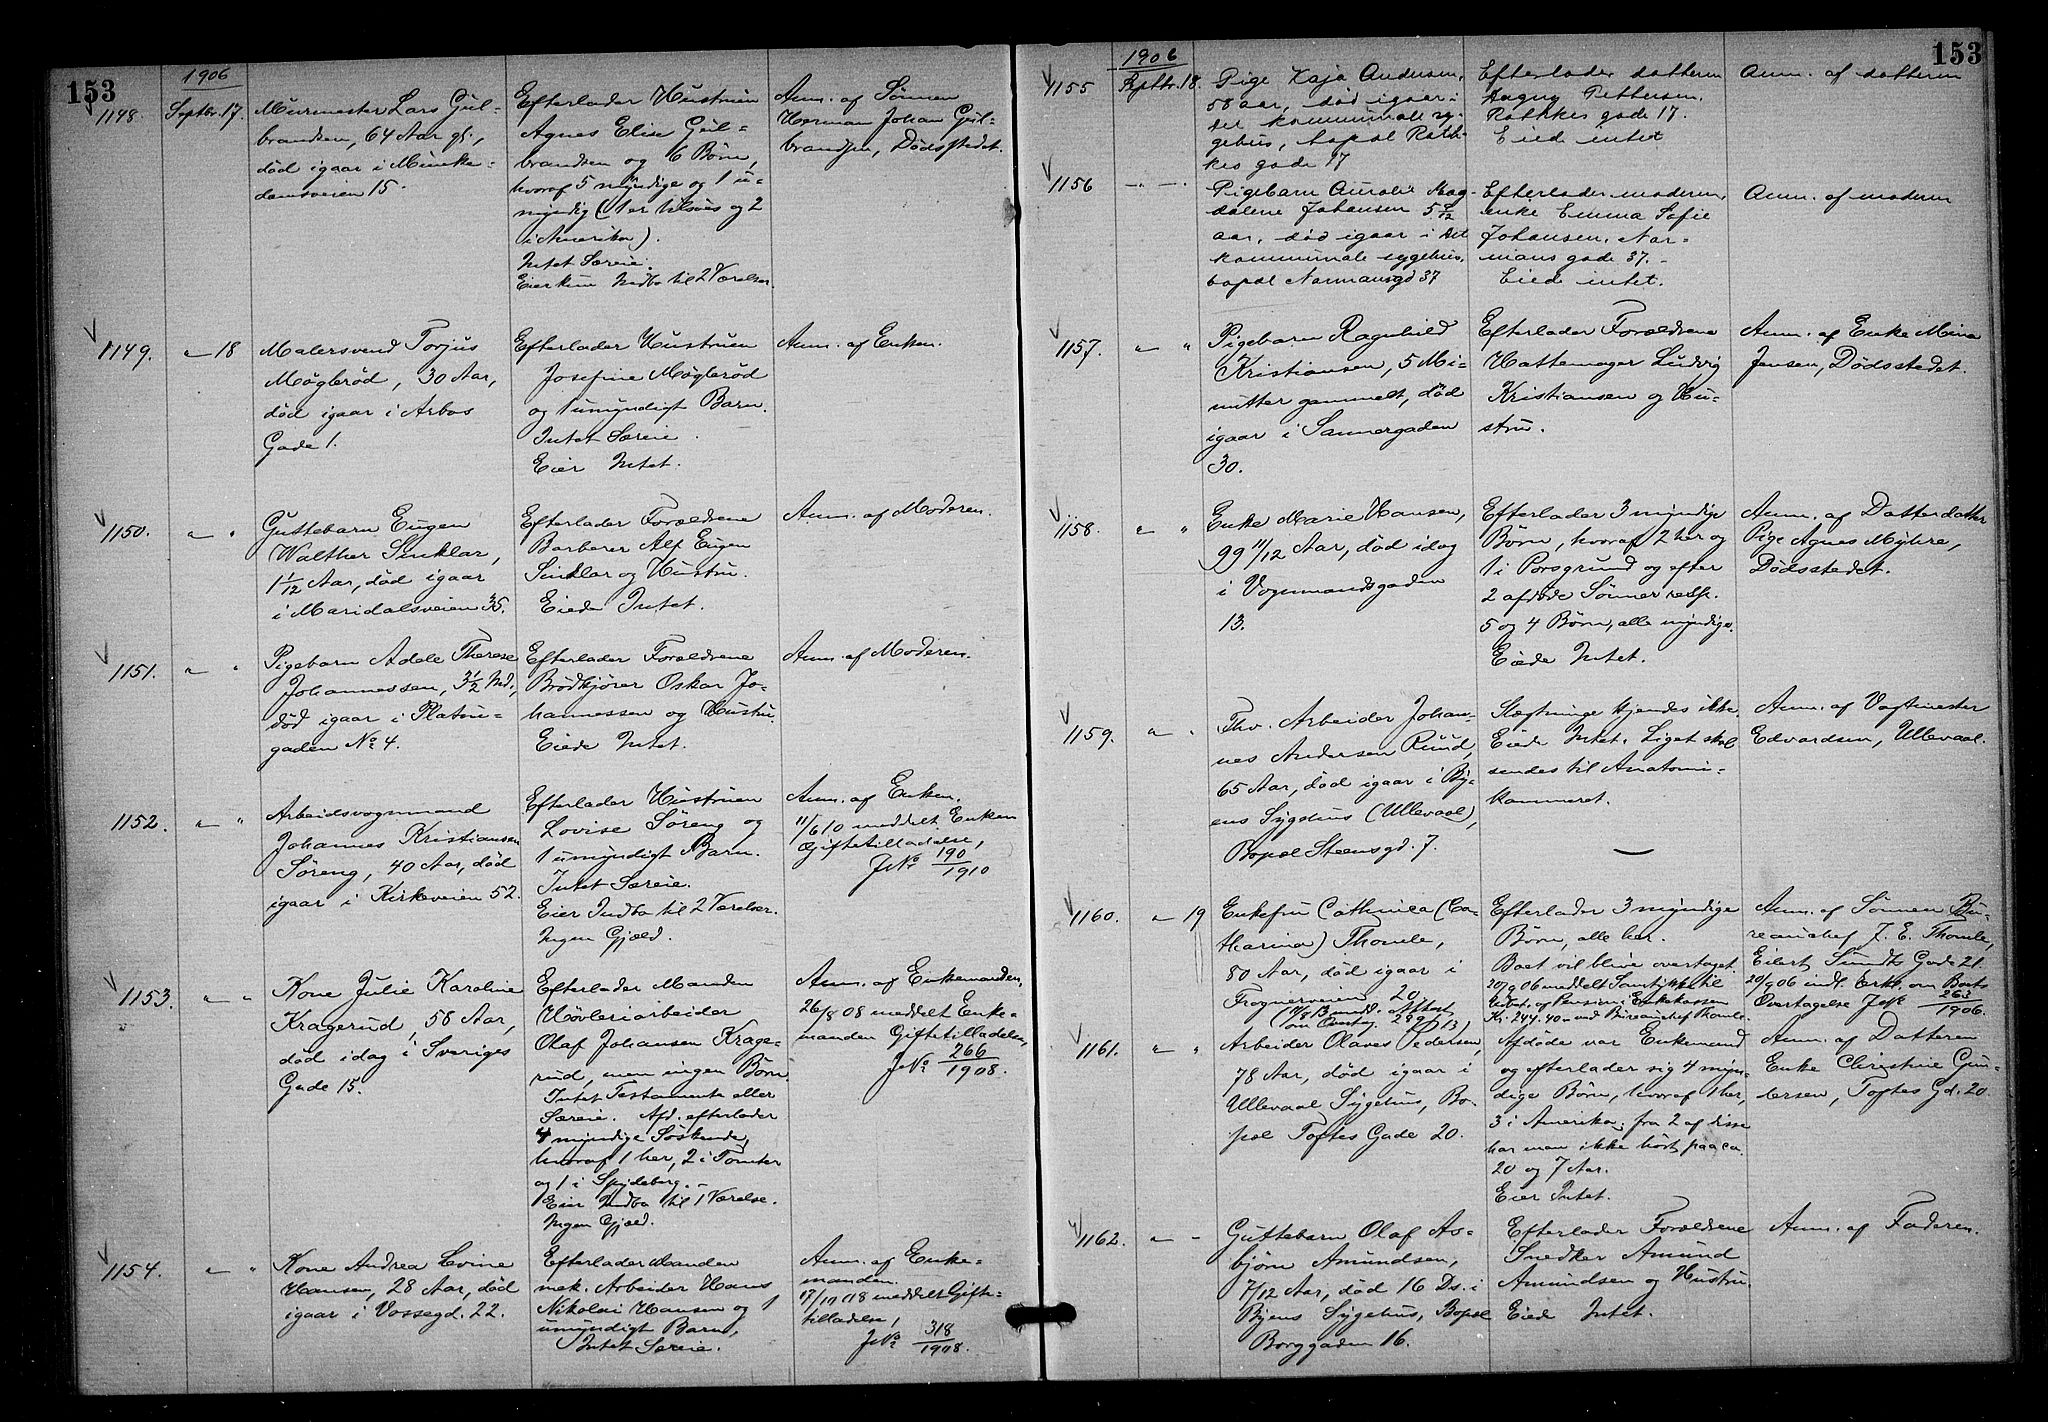 153
1906
1148.
Septbr. 17.
Murmester Lars Gul-
brandsen, 64 Aar gl.,
død igaar i Munke-
damsveien 15.
Efterlader Hustruen
Agnes Elise Gul-
brandsen og 6 Børn,
hvoraf 5 myndige og 1 u-
myndig (1 er tilsøs og 2
i Amerika).
Intet Særeie.
Eier kun Indbo til 2 Værelser.
Anm. af Sønnen
Herman Johan Gul-
brandsen, Dødsstedet.
1149.
" 18
Malersvend Torjus
Møglerød, 30 Aar,
død igaar i Arbos
Gade 1.
Efterlader Hustruen
Josefine Møglerød
og 1 umyndigt Barn.
Intet Særeie.
Eier Intet.
Anm. af Enken.
1150.
" "
Guttebarn Eugen
Walther Sinklar,
1 1/12 Aar, død igaar
i Maridalsveien 35.
Efterlader Forældrene
Barberer Alf Eugen
Sinklar og Hustru.
Eiede Intet.
Anm. af Moderen.
1151.
" "
Pigebarn Adele Therese
Johannessen, 3½ Md.,
død igaar i Platou-
gaden No 4.
Efterlader Forældrene
Brødkjører Oskar Jo-
hannessen og Hustru.
Eiede Intet.
Anm. af Moderen.
1152.
" "
Arbeidsvognmand
Johannes Kristiansen
Søreng, 40 Aar, død
igaar i Kirkeveien 52.
Efterlader Hustruen
Lovise Søreng og
1 umyndigt Barn.
Intet Særeie.
Eier Indbo til 2 Værelser.
Ingen Gjæld.
Anm. af Enken.
11/6 10 meddelt Enken
Giftetilladelse,
JNo 190/1910
1153.
" "
Kone Julie Karoline
Kragerud, 58 Aar,
død idag i Sveriges
Gade 15.
Efterlader Manden
Høvleriarbeider
Olaf Johansen Krage-
rud, men ingen Børn.
Intet Testamente eller
Særeie. Afd. efterlader
4 myndige Søskende,
hvoraf 1 her, 2 i Tomter
og 1 i Spydeberg. -
Eier Indbo til 1 Værelse.
Ingen Gjæld.
Anm. af Enkemanden.
26/8 08 meddelt Enke-
manden Giftetilladelse,
JNo 266/1908.
1154.
" "
Kone Andrea Lovine
Hansen, 28 Aar, død
igaar i Vossegd. 22.
Efterlader Manden
mek. Arbeider Hans
Nikolai Hansen og 1
umyndigt Barn,
Intet Særeie.
Anm. af Enke-
manden.
17/10 08 meddelt Gifte-
tilladelse,
JNo 318/1908.
153
1906
1155
Septbr. 18.
Pige Kaja Andersen,
58 aar, død igaar i
det kommunale sy-
gehus, bopæl Rath-
kes gade 17
Efterlader datteren
Dagny Pettersen,
Rathkes gade 17.
Eiede intet
Anm. af datteren
1156
- " - " -
Pigebarn Aurelie Mag-
dalene Johansen 5 5/12
aar, død igaar i det
kommunale sygehus,
bopæl Normansgd 37
Efterlader moderen,
enke Emma Sofie
Johansen, Nor-
mans gade 37. -
Eiede intet.
Anm. af moderen
1157.
" "
Pigebarn Ragnhild
Kristiansen, 5 Mi-
nutter gammelt, død
igaar i Sannergaden
30.
Efterlader Forældrene
Hattemager Ludvig
Kristiansen og Hu-
stru.
Anm. af Enke Mina
Jensen, Dødsstedet.
1158.
" "
Enke Marie Hansen,
99 11/12 Aar, død idag
i Vognmandsgaden
13.
Efterlader 3 myndige
Børn, hvoraf 2 her og
1 i Porsgrund og efter
2 afdøde Sønner resp.
5 og 4 Børn, alle myndige.
Eiede Intet.
Anm. af Datterdatter
Pige Agnes Myhre,
Dødsstedet.
1159.
" "
Fhv. Arbeider Johan-
nes Andersen Ruud,
65 Aar, død igaar i By-
ens Sygehus (Ullevaal),
Bopæl Steensgd. 7.
Slægtninge kjendes ikke.
Eiede Intet. Liget skal
sendes til Anatomi-
kammeret.
Anm. af Vagtmester
Edvardsen, Ullevaal.
1160.
" 19
Enkefru Cathinca (Ca-
tharina) Thomle,
80 Aar, død igaar i
Frognerveien 20
Efterlader 3 myndige
Børn, alle her.
Boet vil blive overtaget.
20/9 06 meddelt Samtykke til
Udbet. af Pension i Enkekassen
Kr. 244.40 - ved Bureauchef Thomle.
Anm. af Sønnen Bu-
reauchef J. E. Thomle,
Eilert Sundts Gade 21
20/9 06 indl. Erkl. om Boets
Overtagelse JNo 263/1906.
1161.
" "
Arbeider Olaves Pedersen,
78 Aar, død igaar i
Ullevaal Sygehus, Bo-
pæl Toftes Gade 20.
Afdøde var Enkemand
og efterlader sig 4 myn-
dige Børn, hvoraf 1 her,
3 i Amerika; fra 2 af disse
har man ikke hørt paa ca.
20 og 7 Aar.
Eier Intet.
Anm. af Datteren
Enke Christine Gun-
dersen, Toftes Gd. 20
1162.
" -
Guttebarn Olaf As-
bjørn Amundsen,
7/12 Aar, død 16 Ds. i
Byens Sygehus, Bopæl
Borggaden 16.
Efterlader Forældrene
Snedker Amund
Amundsen og Hustru.
Eiede Intet.
Anm. af Faderen.